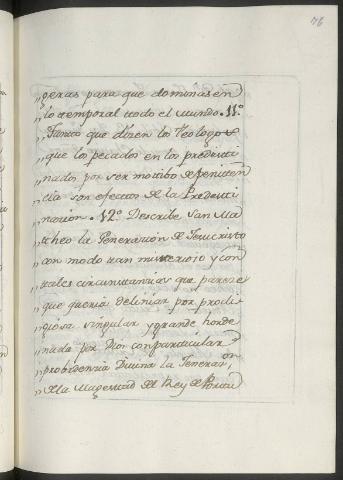 76
„geras para que dominasen
„lo temporal todo el mundo. 11º
„Tanto que dizen los Teologos
„que los pecados en los predesti
„nados por ser motibo de peniten
„cia son efectos de la Predesti
„nacion. 12º Describe San Ma
„theo la Generacion de Jesucristo
„con modo tan misterioso y con
„tales circunstancias que parece
„que queria deliniar por prodi
„giosa singular y grande
„nada por Dios con particular
„probidencia Divina la Generaon
„de la Magestad del Rey de